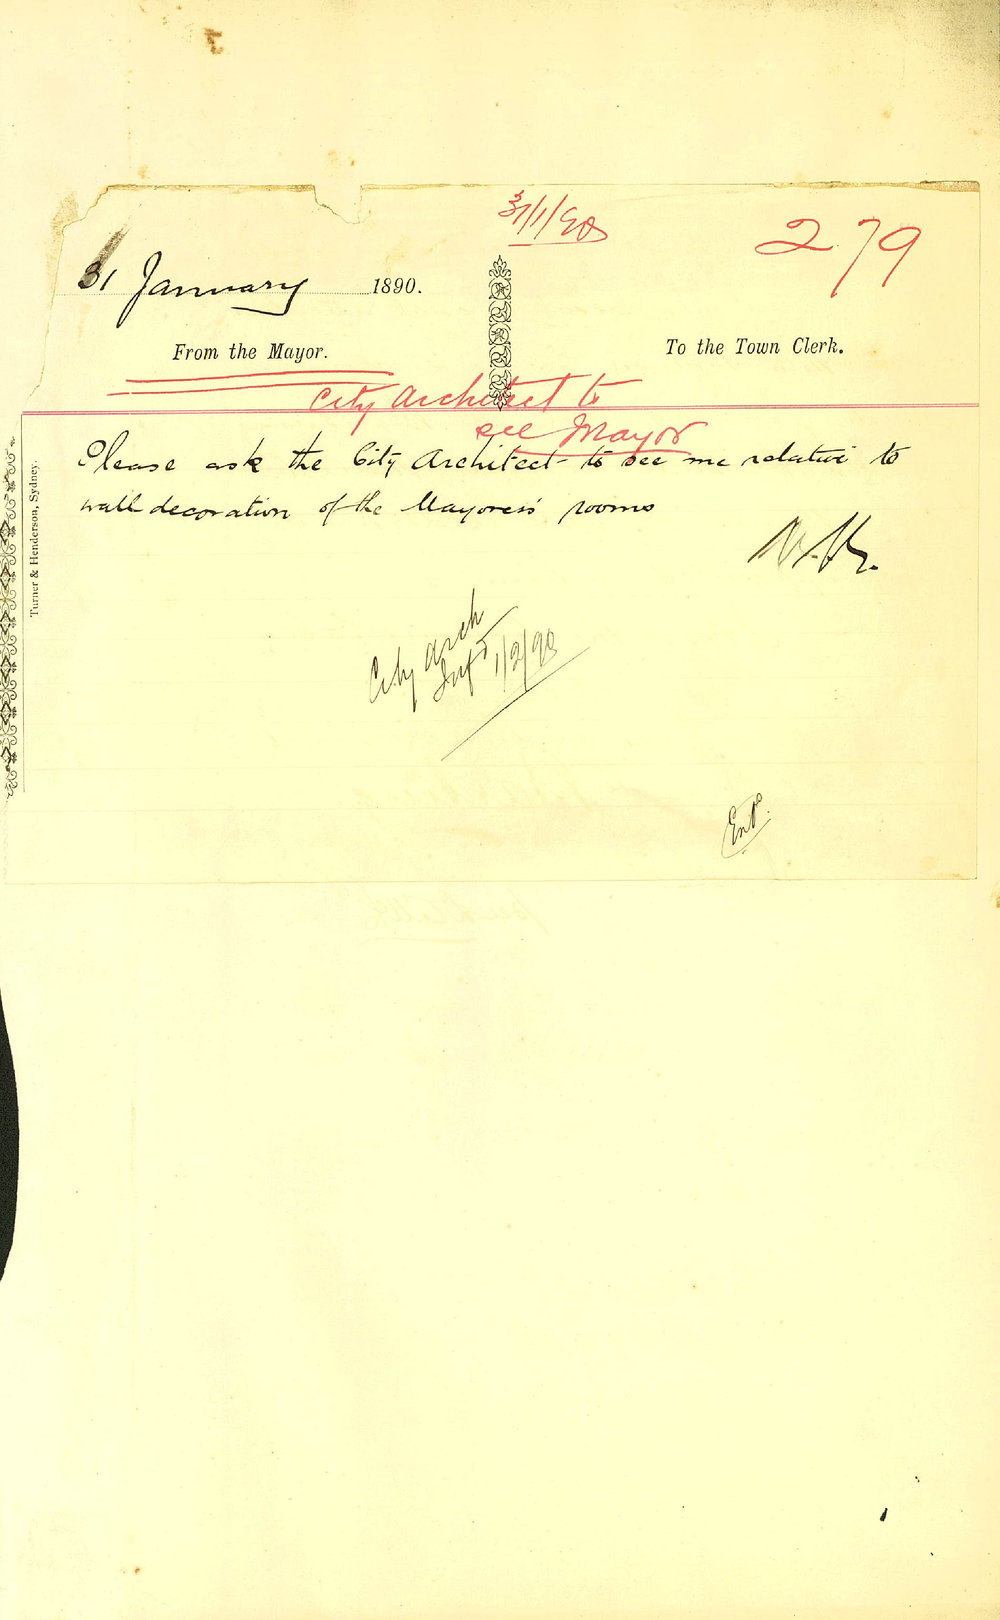 31/1/90
279
31 January 1890.
From the Mayor.
To the Town Clerk.
City Architect to
see Mayor
Please ask the City Architect to see me relative to
wall decoration of the Mayoress' rooms
City Arch
Infd 1/2/90
Entd.
Turner & Henderson, Sydney.